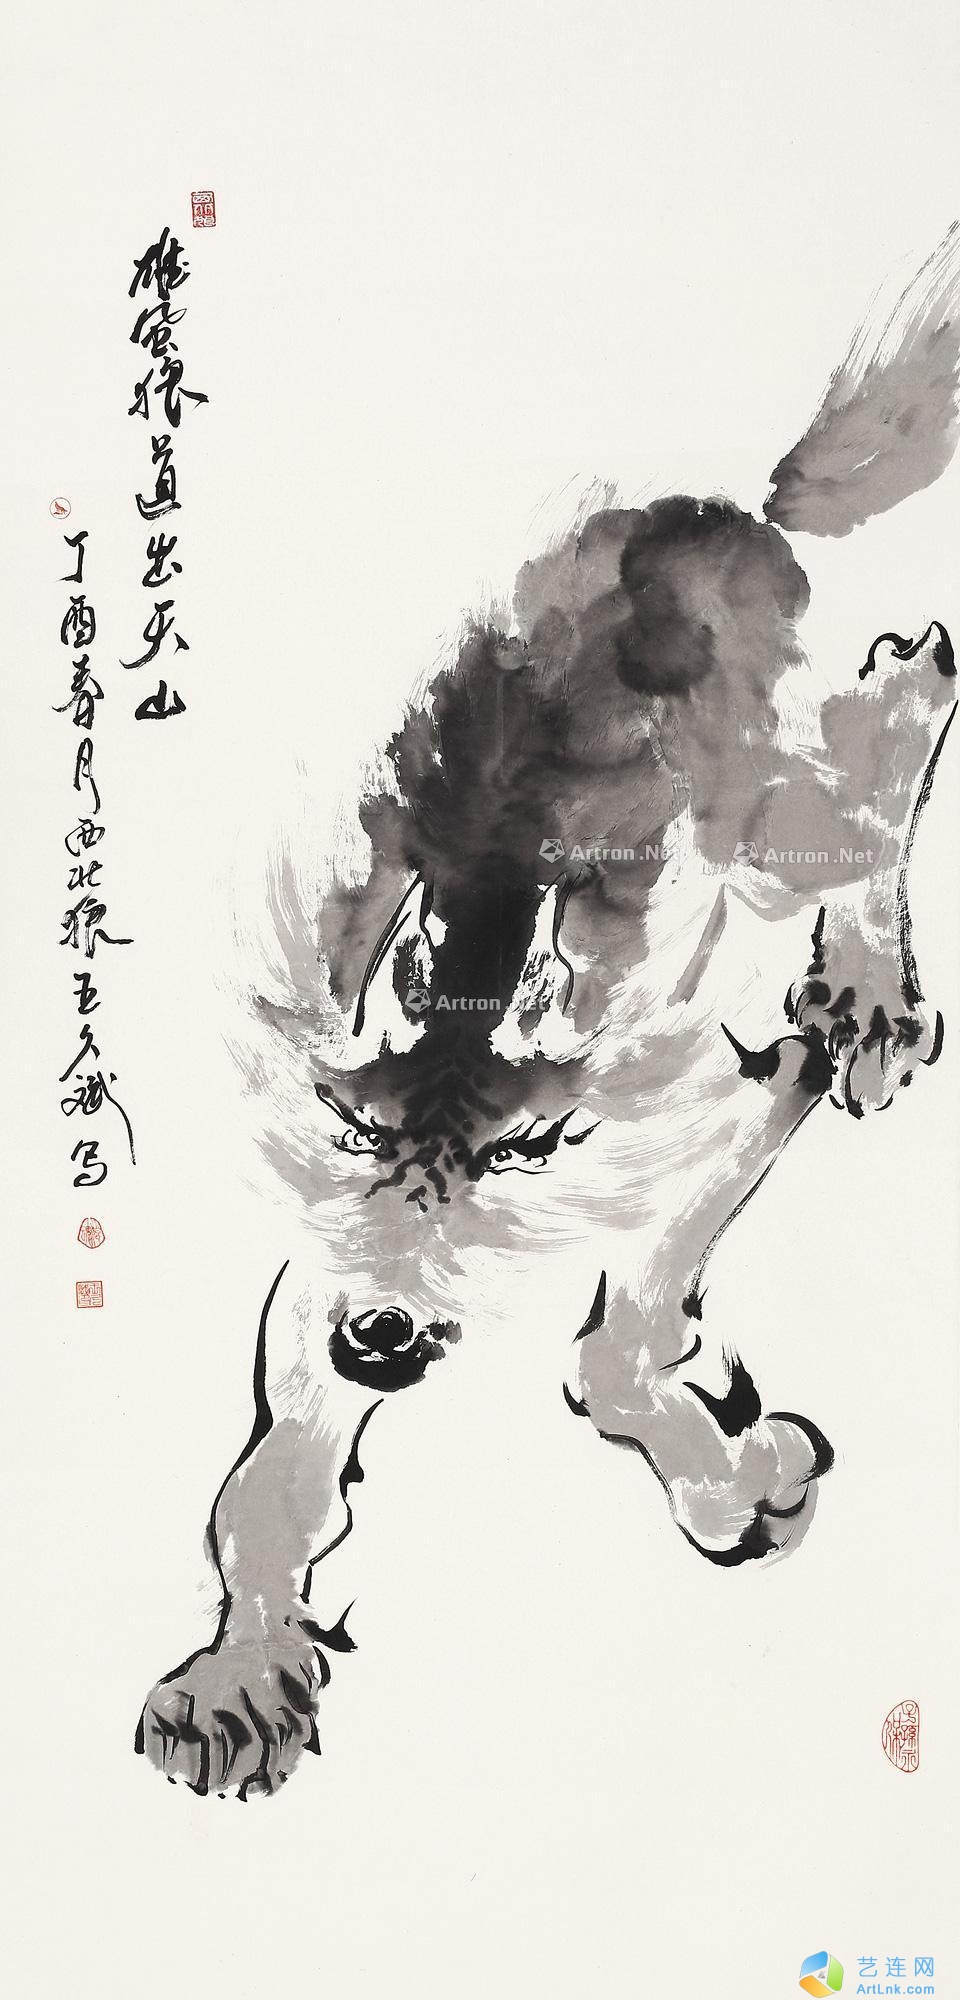 雄风狼道出天山
丁酉春月西北狼王久斌写
Artron.Net
Artron.Net
Artron.Net
艺连网
ArtLnk.com